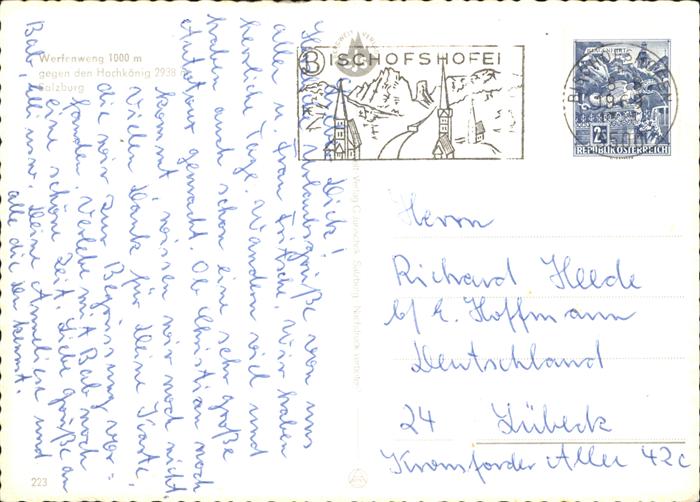 Werfenweng 1000 m
gegen den Hochkönig 2938
Salzburg
Lieber Dick!
Herzliche Urlaubsgrüße von uns
allen u. Frau Fritsche. Wir haben
herrliche Tage. Wandern viel und
haben auch schon eine sehr große
Autotour gemacht. Ob Christian noch
kommt, wissen wir noch nicht
Vielen Dank für Deine Karte,
die wir zur Begrüssung vor=
fanden. Verlebe mit Bab noch
eine schöne Zeit. Liebe Grüße an
Bab, Deine Anneliese und
alle die Du kennst.
223
BISCHOFSHOFEN
2S
REPUBLIK ÖSTERREICH
Herrn
Richard Heede
b/ E. Hoffmann
Deutschland
24 Lübeck
Kronsforder Allee 42c